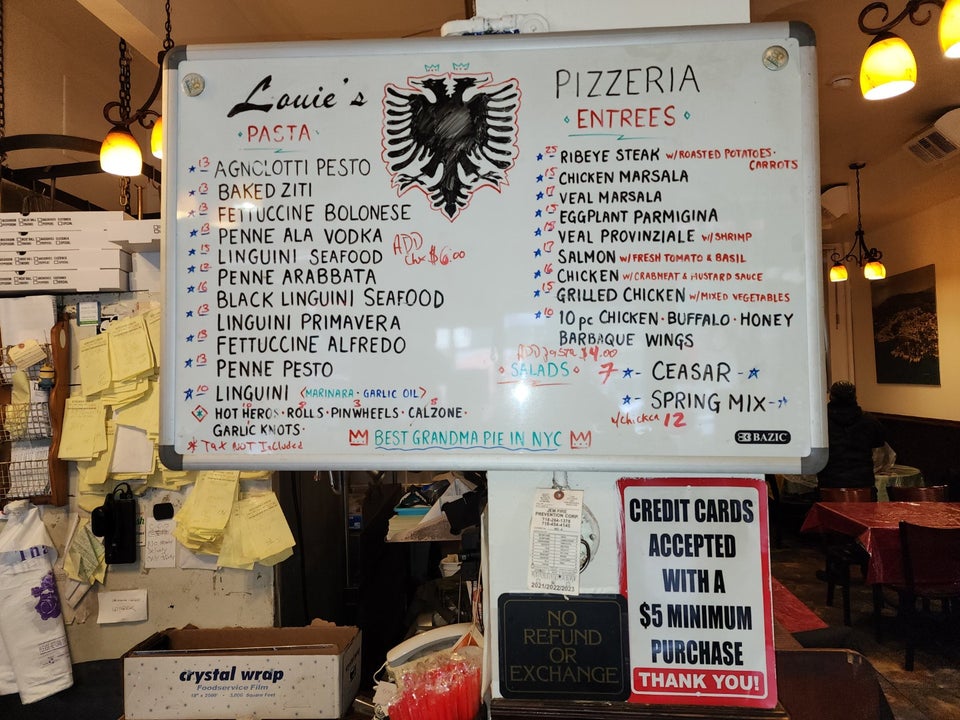 Louie's
PIZZERIA
PASTA
13 AGNOLOTTI PESTO
13 BAKED ZITI
13 FETTUCCINE BOLONESE
13 PENNE ALA VODKA
15 LINGUINI SEAFOOD
ADD
Chx $6.00
PENNE ARABBATA
16 BLACK LINGUINI SEAFOOD
13 LINGUINI PRIMAVERA
13 FETTUCCINE ALFREDO
13 PENNE PESTO
10 LINGUINI <MARINARA · GARLIC OIL>
HOT HEROS · ROLLS · PINWHEELS · CALZONE ·
GARLIC KNOTS ·
* TAX NOT Included
ENTREES
25 RIBEYE STEAK W/ROASTED POTATOES ·
CARROTS
15 CHICKEN MARSALA
VEAL MARSALA
15 EGGPLANT PARMIGINA
VEAL PROVINZIALE W/SHRIMP
SALMON W/FRESH TOMATO & BASIL
16 CHICKEN W/CRABMEAT & MUSTARD SAUCE
15 GRILLED CHICKEN W/MIXED VEGETABLES
10 10 pc CHICKEN · BUFFALO · HONEY
BARBAQUE WINGS
ADD Pasta $4.00
SALADS
7 CEASAR
SPRING MIX
w/chicken 12
BEST GRANDMA PIE IN NYC
BAZIC
JEM FIRE
PREVENTION CORP
2021/2022/2023
NO
REFUND
OR
EXCHANGE
CREDIT CARDS
ACCEPTED
WITH A
$5 MINIMUM
PURCHASE
THANK YOU!
crystal wrap
Foodservice Film